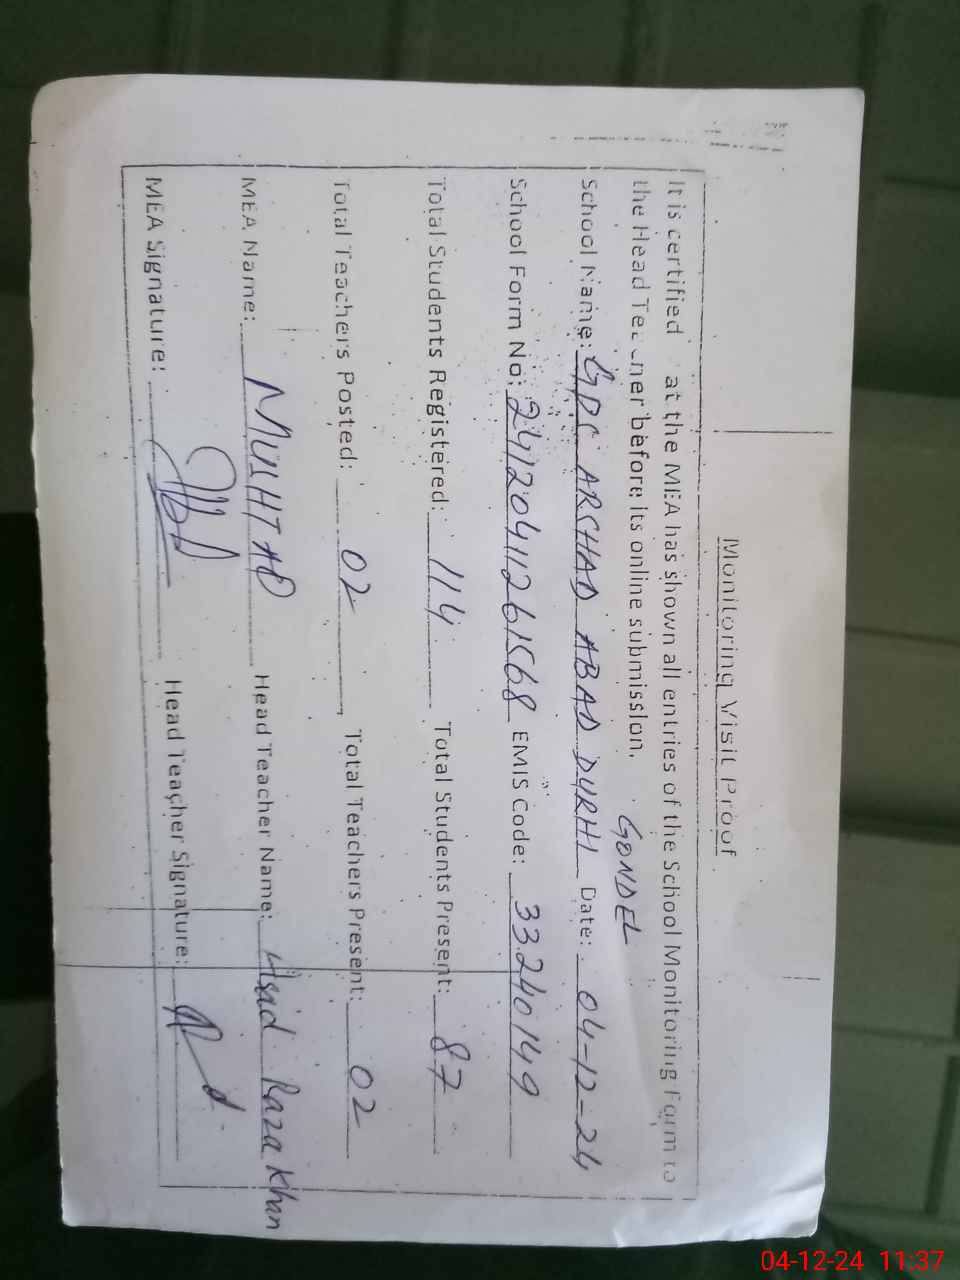 Monitoring Visit Proof
It is certified at the MEA has shown all entries of the School Monitoring Form to
the Head Teacher before its online submission.
GONDEL
School Name: GPS ARSHAD ABAD DURHI Date: 04-12-24
School Form No: 24120411261568 EMIS Code: 33240149
Total Students Registered: 114 Total Students Present: 87
Total Teachers Posted: 02 Total Teachers Present: 02
MEA Name: MUKHTAR Head Teacher Name: Asid Raza Khan
MEA Signature: Head Teacher Signature:
04-12-24 11:37